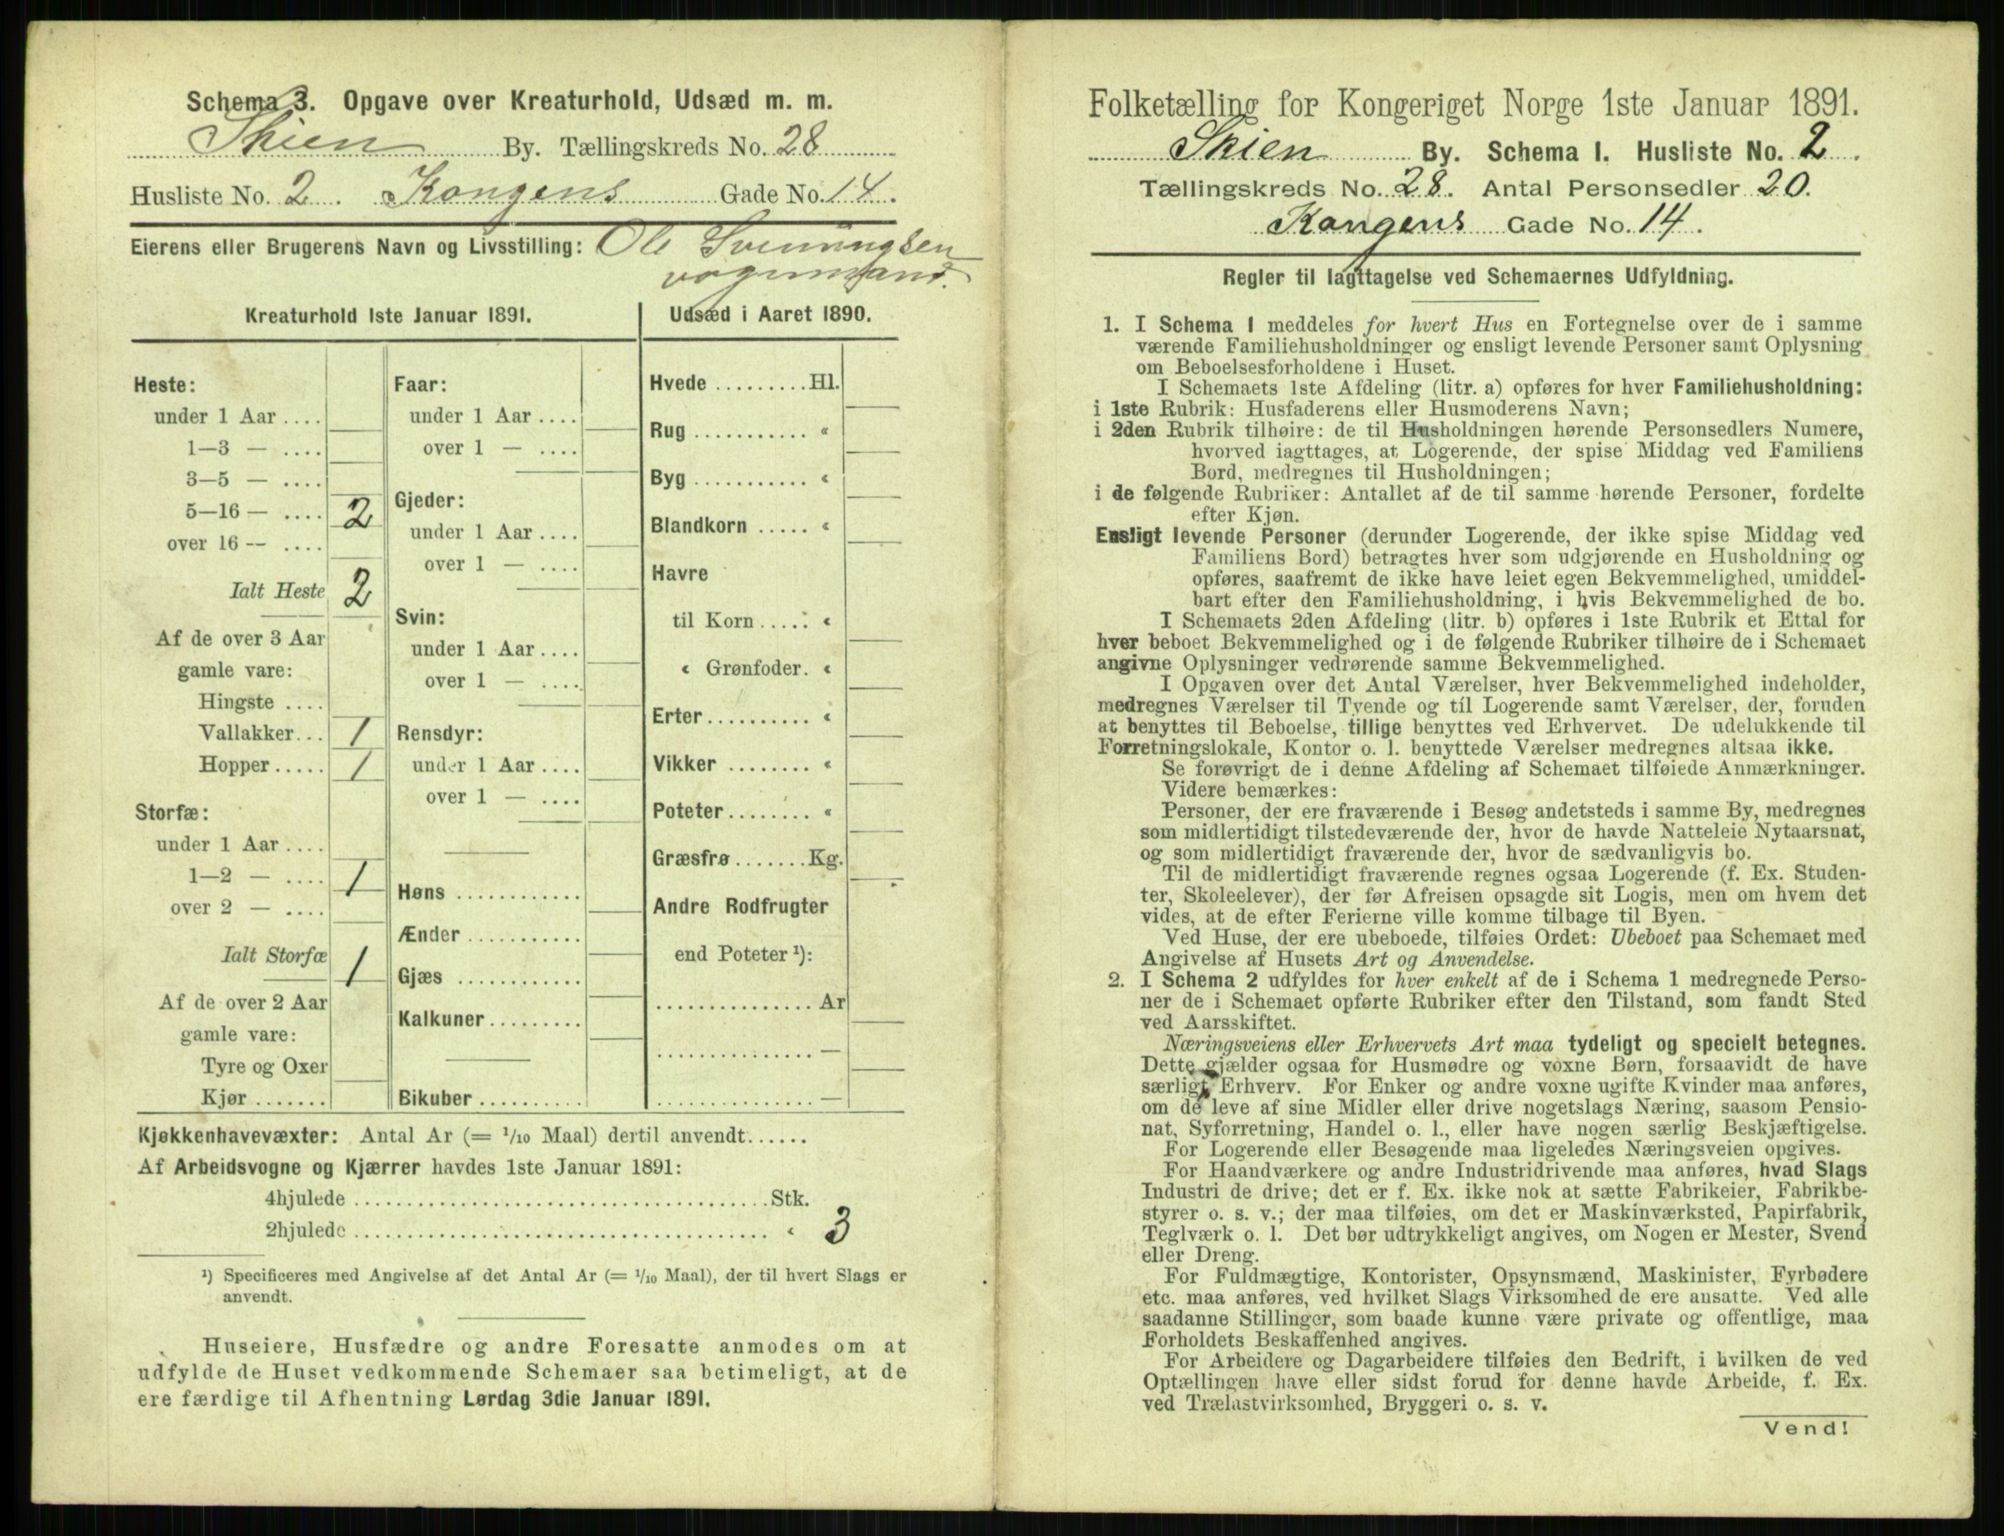 Schema 3. Opgave over Kreaturhold, Udsæd m. m.
Skien By. Tællingskreds No. 28
Husliste No. 2. Kongens Gade No. 14.
Eierens eller Brugerens Navn og Livsstilling: Ole Svenningsen
vognmand.
Kreaturhold 1ste Januar 1891.
Heste:
under 1 Aar ....
1—3 — ....
3—5 — ....
5—16 — .... 2
over 16 — ....
Ialt Heste 2
Af de over 3 Aar
gamle vare:
Hingste ....
Vallakker... 1
Hopper..... 1
Storfæ:
under 1 Aar ....
1—2 — .... 1
over 2 — ....
Ialt Storfæ 1
Af de over 2 Aar
gamle vare:
Tyre og Oxer
Kjør .......
Faar:
under 1 Aar ....
over 1 — ....
Gjeder:
under 1 Aar ....
over 1 — ....
Svin:
under 1 Aar ....
over 1 — ....
Rensdyr:
under 1 Aar ....
over 1 — ....
Høns ............
Ænder ...........
Gjæs ............
Kalkuner.........
Bikuber ..........
Udsæd i Aaret 1890.
Hvede .........Hl.
Rug ........... “
Byg ........... “
Blandkorn ..... “
Havre
til Korn ..... “
“ Grønfoder. “
Erter.......... “
Vikker ........ “
Poteter........ “
Græsfrø .......Kg.
Andre Rodfrugter
end Poteter ¹):
............... Ar
............... —
............... —
Kjøkkenhavevæxter: Antal Ar (= 1/10 Maal) dertil anvendt......
Af Arbeidsvogne og Kjærrer havdes 1ste Januar 1891:
4hjulede ........................................Stk.
2hjulede ........................................ “ 3
¹) Specificeres med Angivelse af det Antal Ar (= 1/10 Maal), der til hvert Slags er
anvendt.
Huseiere, Husfædre og andre Foresatte anmodes om at
udfylde de Huset vedkommende Schemaer saa betimeligt, at de
ere færdige til Afhentning Lørdag 3die Januar 1891.
Folketælling for Kongeriget Norge 1ste Januar 1891.
Skien By. Schema I. Husliste No. 2.
Tællingskreds No. 28. Antal Personsedler 20.
Kongens Gade No. 14.
Regler til Iagttagelse ved Schemaernes Udfyldning.
1. I Schema 1 meddeles for hvert Hus en Fortegnelse over de i samme
værende Familiehusholdninger og ensligt levende Personer samt Oplysning
om Beboelsesforholdene i Huset.
I Schemaets 1ste Afdeling (litr. a) opføres for hver Familiehusholdning:
i 1ste Rubrik: Husfaderens eller Husmoderens Navn;
i 2den Rubrik tilhøire: de til Husholdningen hørende Personsedlers Numere,
hvorved iagttages, at Logerende, der spise Middag ved Familiens
Bord, medregnes til Husholdningen;
i de følgende Rubriker: Antallet af de til samme hørende Personer, fordelte
efter Kjøn.
Ensligt levende Personer (derunder Logerende, der ikke spise Middag ved
Familiens Bord) betragtes hver som udgjørende en Husholdning og
opføres, saafremt de ikke have leiet egen Bekvemmelighed, umiddel-
bart efter den Familiehusholdning, i hvis Bekvemmelighed de bo.
I Schemaets 2den Afdeling (litr. b) opføres i 1ste Rubrik et Ettal for
hver beboet Bekvemmelighed og i de følgende Rubriker tilhøire de i Schemaet
angivne Oplysninger vedrørende samme Bekvemmelighed.
I Opgaven over det Antal Værelser, hver Bekvemmelighed indeholder,
medregnes Værelser til Tyende og til Logerende samt Værelser, der, foruden
at benyttes til Beboelse, tillige benyttes ved Erhvervet. De udelukkende til
Forretningslokale, Kontor o. l. benyttede Værelser medregnes altsaa ikke.
Se forøvrigt de i denne Afdeling af Schemaet tilføiede Anmærkninger.
Videre bemærkes:
Personer, der ere fraværende i Besøg andetsteds i samme By, medregnes
som midlertidigt tilstedeværende der, hvor de havde Natteleie Nytaarsnat,
og som midlertidigt fraværende der, hvor de sædvanligvis bo.
Til de midlertidigt fraværende regnes ogsaa Logerende (f. Ex. Studen-
ter, Skoleelever), der før Afreisen opsagde sit Logis, men om hvem det
vides, at de efter Ferierne ville komme tilbage til Byen.
Ved Huse, der ere ubeboede, tilføies Ordet: Ubeboet paa Schemaet med
Angivelse af Husets Art og Anvendelse.
2. I Schema 2 udfyldes for hver enkelt af de i Schema 1 medregnede Perso-
ner de i Schemaet opførte Rubriker efter den Tilstand, som fandt Sted
ved Aarsskiftet.
Næringsveiens eller Erhvervets Art maa tydeligt og specielt betegnes.
Dette gjælder ogsaa for Husmødre og voxne Børn, forsaavidt de have
særligt Erhverv. For Enker og andre voxne ugifte Kvinder maa anføres,
om de leve af sine Midler eller drive nogetslags Næring, saasom Pensio-
nat, Syforretning, Handel o. l., eller have nogen særlig Beskjæftigelse.
For Logerende eller Besøgende maa ligeledes Næringsveien opgives.
For Haandværkere og andre Industridrivende maa anføres, hvad Slags
Industri de drive; det er f. Ex. ikke nok at sætte Fabrikeier, Fabrikbe-
styrer o. s. v.; der maa tilføies, om det er Maskinværksted, Papirfabrik,
Teglværk o. l. Det bør udtrykkeligt angives, om Nogen er Mester, Svend
eller Dreng.
For Fuldmægtige, Kontorister, Opsynsmænd, Maskinister, Fyrbødere
etc. maa anføres, ved hvilket Slags Virksomhed de ere ansatte. Ved alle
saadanne Stillinger, som baade kunne være private og offentlige, maa
Forholdets Beskaffenhed angives.
For Arbeidere og Dagarbeidere tilføies den Bedrift, i hvilken de ved
Optællingen have eller sidst forud for denne havde Arbeide, f. Ex.
ved Trælastvirksomhed, Bryggeri o. s. v.
Vend!